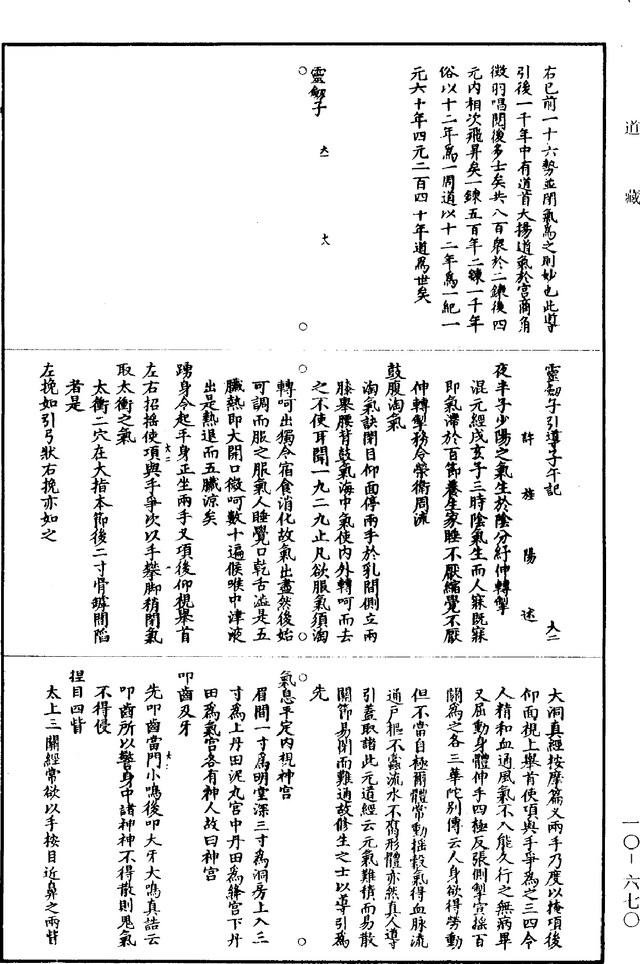 道藏
右已前一十六勢並閉氣為之則妙也此導
引後一千年中有道首大揚道氣於宮商角
徵羽唱閱後多士矣共八百衆於二鍊後四
元內相次飛昇矣一鍊五百年二鍊一千年
俗以十二年為一周道以十二年為一紀一
元六十年四元二百四十年道為世矣
靈劍子
靈劍子引導子午記
許旌陽述
夜半子少陽之氣生於陰分紓伸轉掣
混元經戌亥子三時陰氣生而人寐既寐
即氣滯於百節養生家睡不厭縮覺不厭
伸轉掣務令榮衛周流
鼓腹淘氣
淘氣訣閉目仰面停兩手於乳間側立兩
膝舉腰背鼓氣海中氣使內外轉呵而去
之不使耳聞一九二九止凡欲服氣須淘
轉呵出獨令宿食消化故氣出盡然後始
可調而服之服氣人睡覺口乾舌澁是五
臟熱即大開口微呵數十遍候喉中津液
出是熱退而五臟涼矣
踴身令起平身正坐兩手叉項後仰視舉首
左右招搖使項與手爭次以手攀脚稍閉氣
取太衝之氣
太衝二穴在大指本節後二寸骨罅間陷
者是
左挽如引弓狀右挽亦如之
大洞真經按摩篇叉兩手乃度以掩項後
仰面視上舉首使項與手爭為之三四令
人精和血通風氣不入能久行之無病畢
又屈動身體伸手四極反張側掣宣搖百
關為之各三華陀別傳云人身欲得勞動
但不當自極爾體常動搖穀氣得血脉流
通戶樞不蠹流水不腐形體亦然真人導
引蓋取諸此元道經云元氣難積而易散
關節易閉而難通故修生之士以導引為
先
氣息平定內視神宮
眉間一寸為明堂深三寸為洞房上入三
寸為上丹田泥丸宮中丹田為絳宮下丹
田為氣宮各有神人故曰神宮
叩齒及牙
先叩齒當門小鳴後叩大牙大鳴真誥云
叩齒所以警身中諸神神不得散則鬼氣
不得侵
捏目四眥
太上三關經常欲以手按目近鼻之兩眥
一〇-六七〇